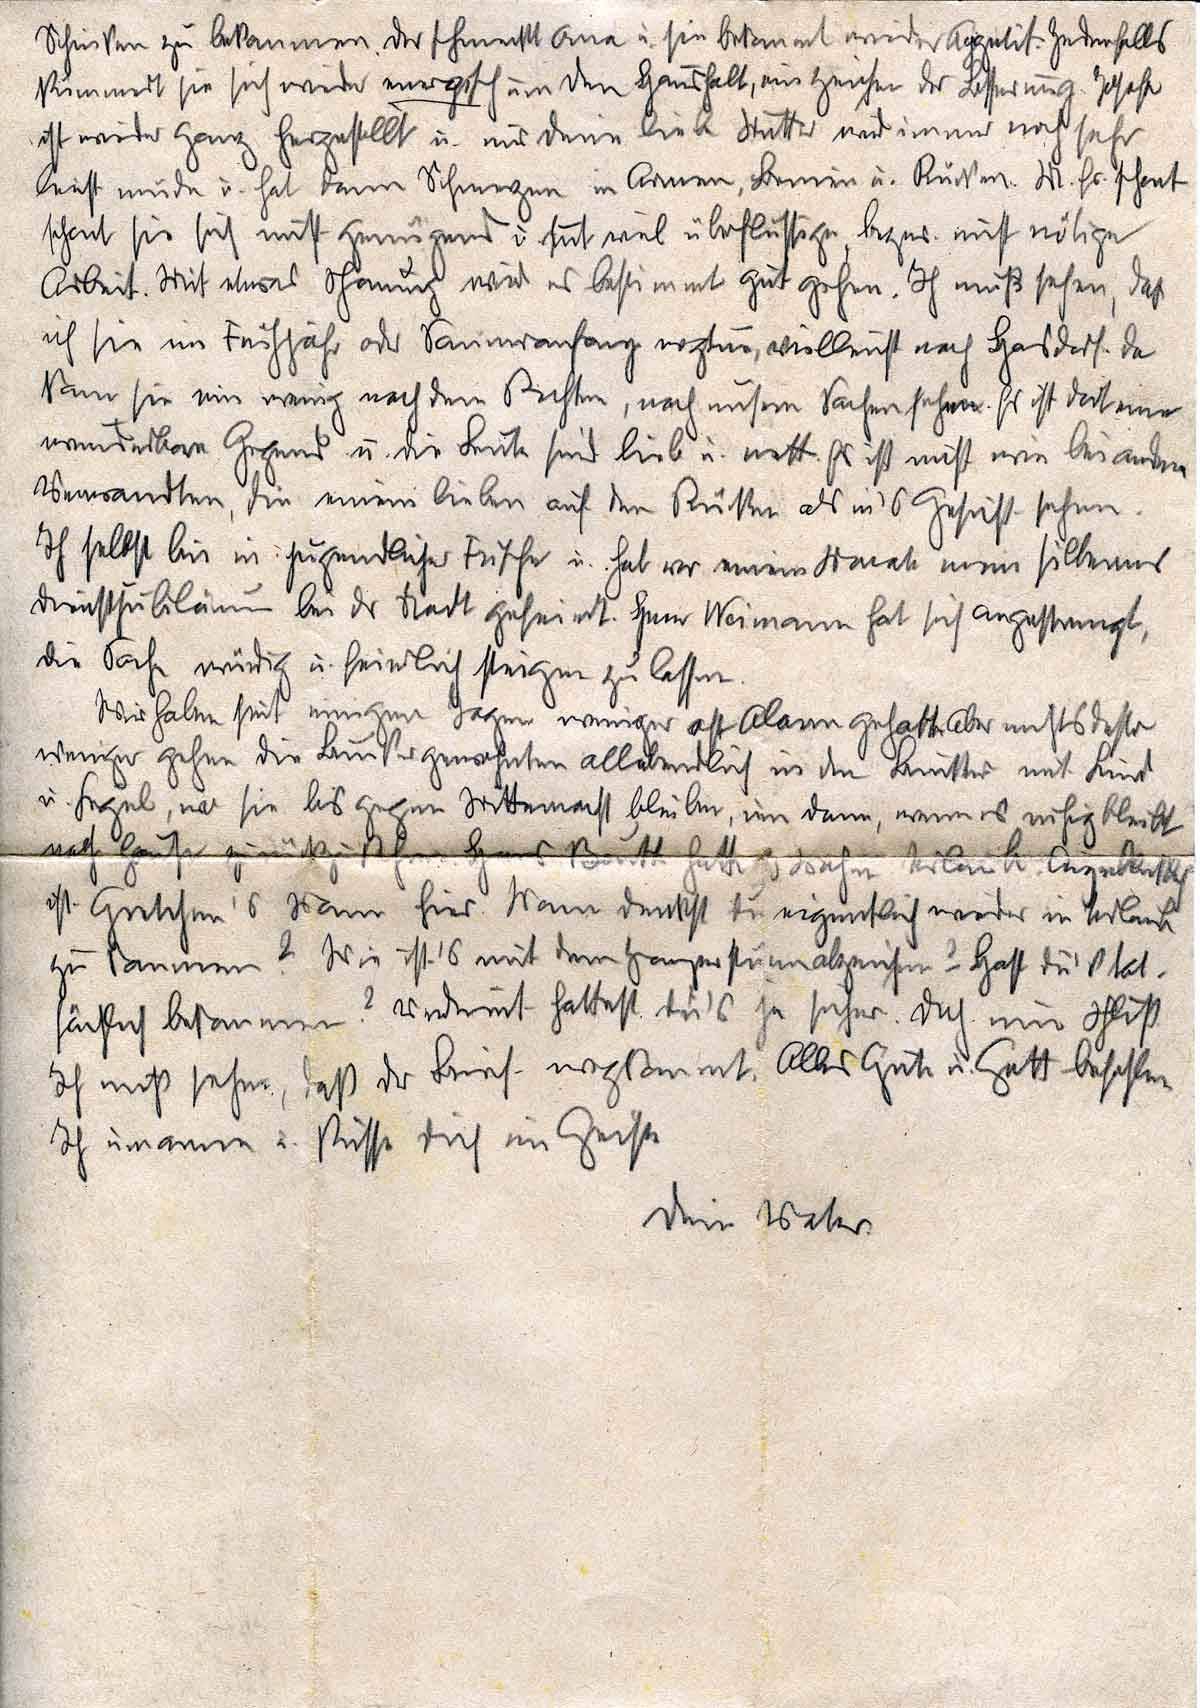 Schinken zu bekommen. Der schmeckt Oma u. sie bekommt wieder Appetit. Jedenfalls
kümmert sie sich wieder energisch um den Haushalt, ein Zeichen der Besserung. Josefa
ist wieder ganz hergestellt u. nur deine liebe Mutter wird immer noch sehr
leicht müde u. hat dann Schmerzen in Armen, Beinen u. Rücken. schont
schont sie sich nicht genügend u. tut viel überflüssige, bezw. nicht nötige
Arbeit. Mit etwas Schonung wird es bestimmt gut gehen. Ich muß sehen, daß
ich sie im Frühjahr oder Sommeranfang vielleicht nach da
kann sie ein wenig nach dem Rechten, nach unsern Sachen sehen. Es ist dort eine
wunderbare Gegend u. die Leute sind lieb u. nett. Es ist nicht wie bei andern
Verwandten, die einem lieber auf den Rücken als in's Gesicht sehen.
Ich selbst bin in jugendlicher Frische u. hab vor einem Monat mein silbernes
Dienstjubiläum bei der Stadt gefeiert. Herr Weimann hat sich angestrengt,
die Sache würdig u. feierlich steigen zu lassen.
Wir haben seit einigen Tagen weniger oft Alarm gehabt. Aber nichts desto
weniger gehen die Bunkergewohnten allabendlich in den Bunker mit Kind
u. Kegel, wo sie bis gegen Mitternacht bleiben, um dann, wenn es ruhig bleibt
nach Hause zurückzukehren. Hans hatte Urlaub. Augenblicklich
ist Gretchen's Mann hier. Wann denkst du eigentlich wieder in Urlaub
zu kommen? Wie ist's mit dem Panzersturmabzeichen? Hast du's tat-
sächlich bekommen? Verdient hattest du's ja sicher. Doch nun Schluß
Ich muß sehen, daß der Brief wegkommt. Alles Gute u. Gott befohlen
Ich umarme u. küsse dich im Geiste
Dein Vater.